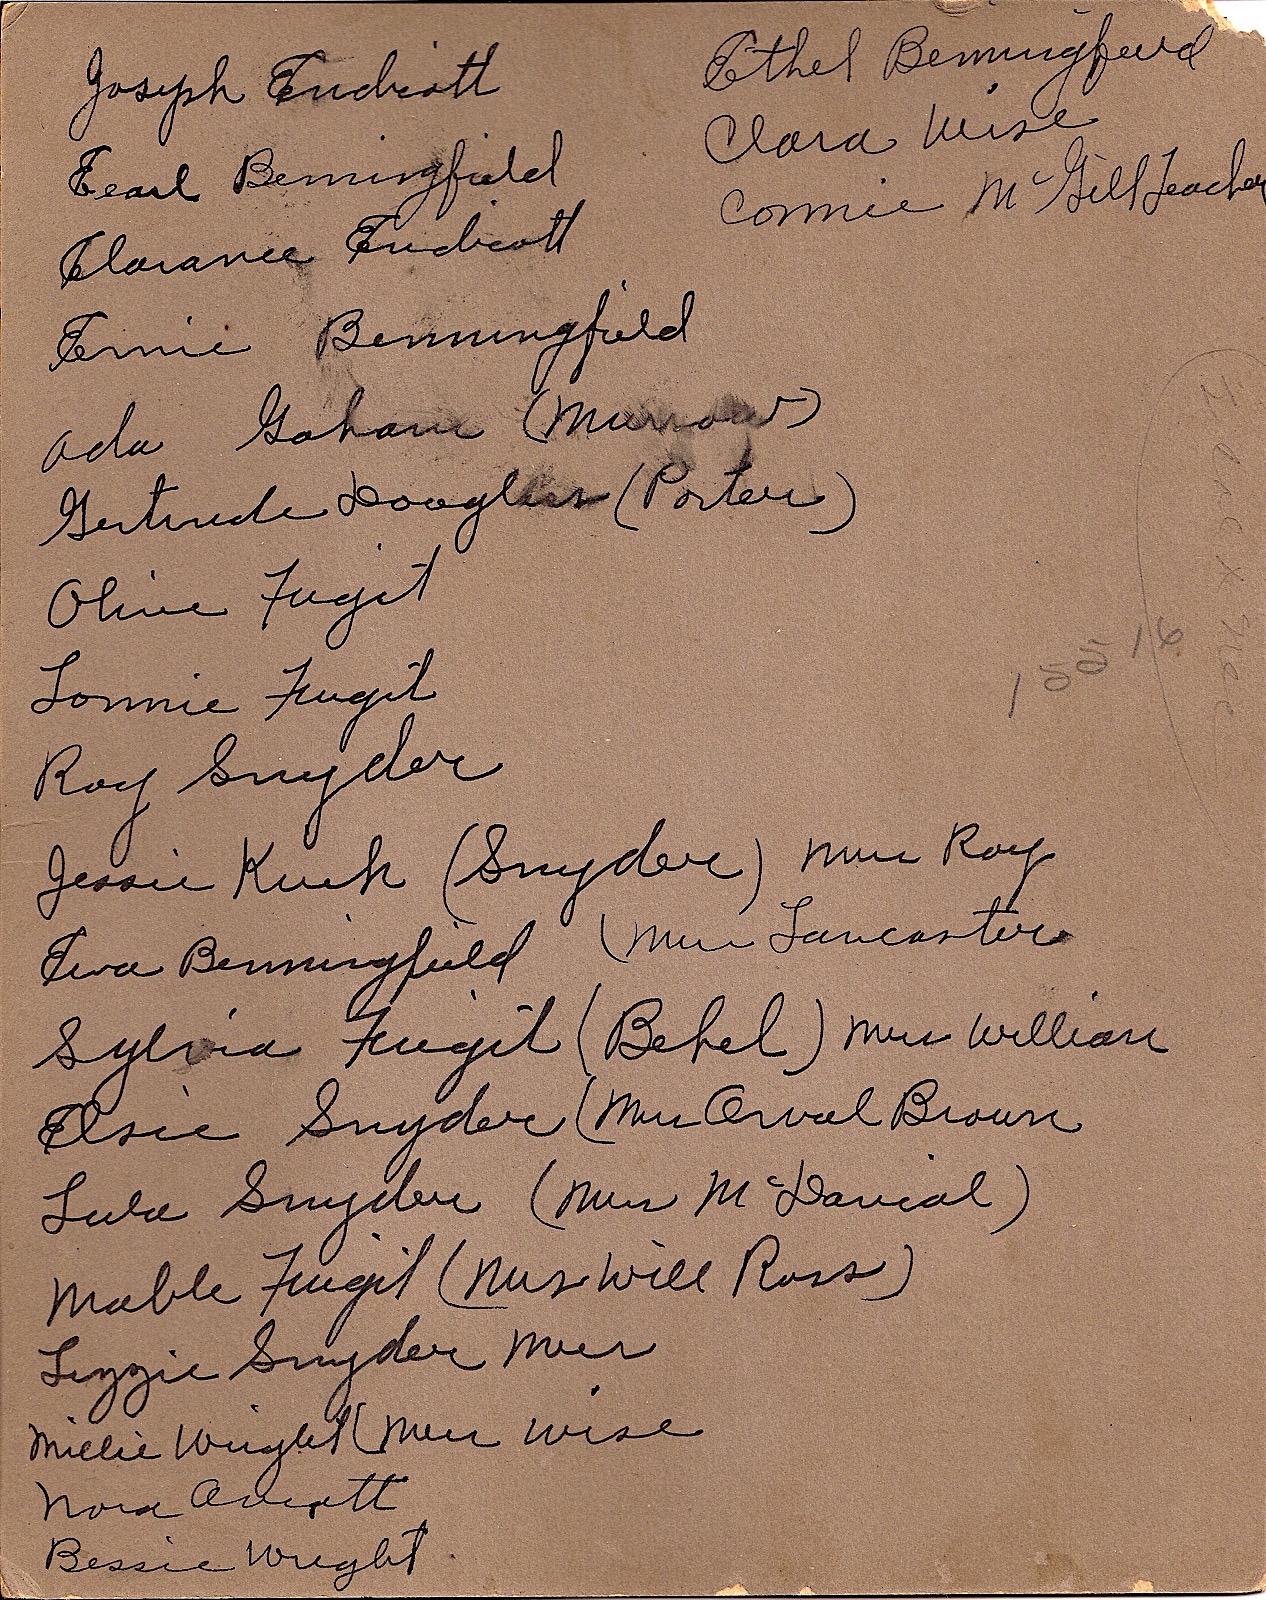 Joseph Endicott
Earl Benningfield
Clarance Endicott
Ernie Benningfield
Ada Graham (Murrow)
Gertrude Douglas (Porter)
Olive Fugit
Lonnie Fugit
Roy Snyder
Jessie Kirk (Snyder) Mrs Roy
Eva Benningfield (Mrs Lancaster
Sylvia Fugit (Behel) Mrs William
Elsie Snyder (Mrs Orval Brown
Lula Snyder (Mrs McDanial)
Mable Fugit (Mrs Will Ross)
Lizzie Snyder Mrs
Millie Wright (Mrs Wise
Nora
Bessie Wright
Ethel Benningfield
Clara Wise
Connie McGill Teacher
15516